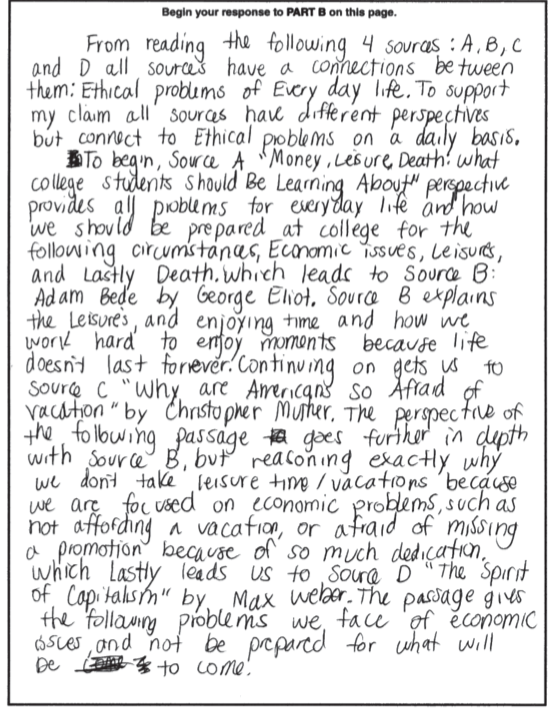 Begin your response to PART B on this page.
From reading the following 4 sources : A, B, C
and D all sources have a connections between
them: Ethical problems of Every day life. To support
my claim all sources have different perspectives
but connect to Ethical problems on a daily basis.
To begin, Source A "Money, Lesure, Death: what
college students should Be Learning About" perspective
provides all problems for everyday life and how
we should be prepared at college for the
following circumstances, Economic issues, Leisures,
and Lastly Death. Which leads to Source B:
Adam Bede by George Eliot. Source B explains
the Leisure's, and enjoying time and how we
work hard to enjoy moments because life
doesn't last forever. Continuing on gets us to
Source C "Why are Americans so Afraid of
vacation" by Christopher Muther. The perspective of
the following passage goes further in depth
with Source B, but reasoning exactly why
we don't take leisure time / vacations because
we are focused on economic problems, such as
not affording a vacation, or afraid of missing
a promotion because of so much dedication.
Which Lastly leads us to Source D "The Spirit
of Capitalism" by Max Weber. The passage gives
the following problems we face of economic
issues, and not be prepared for what will
be to come!